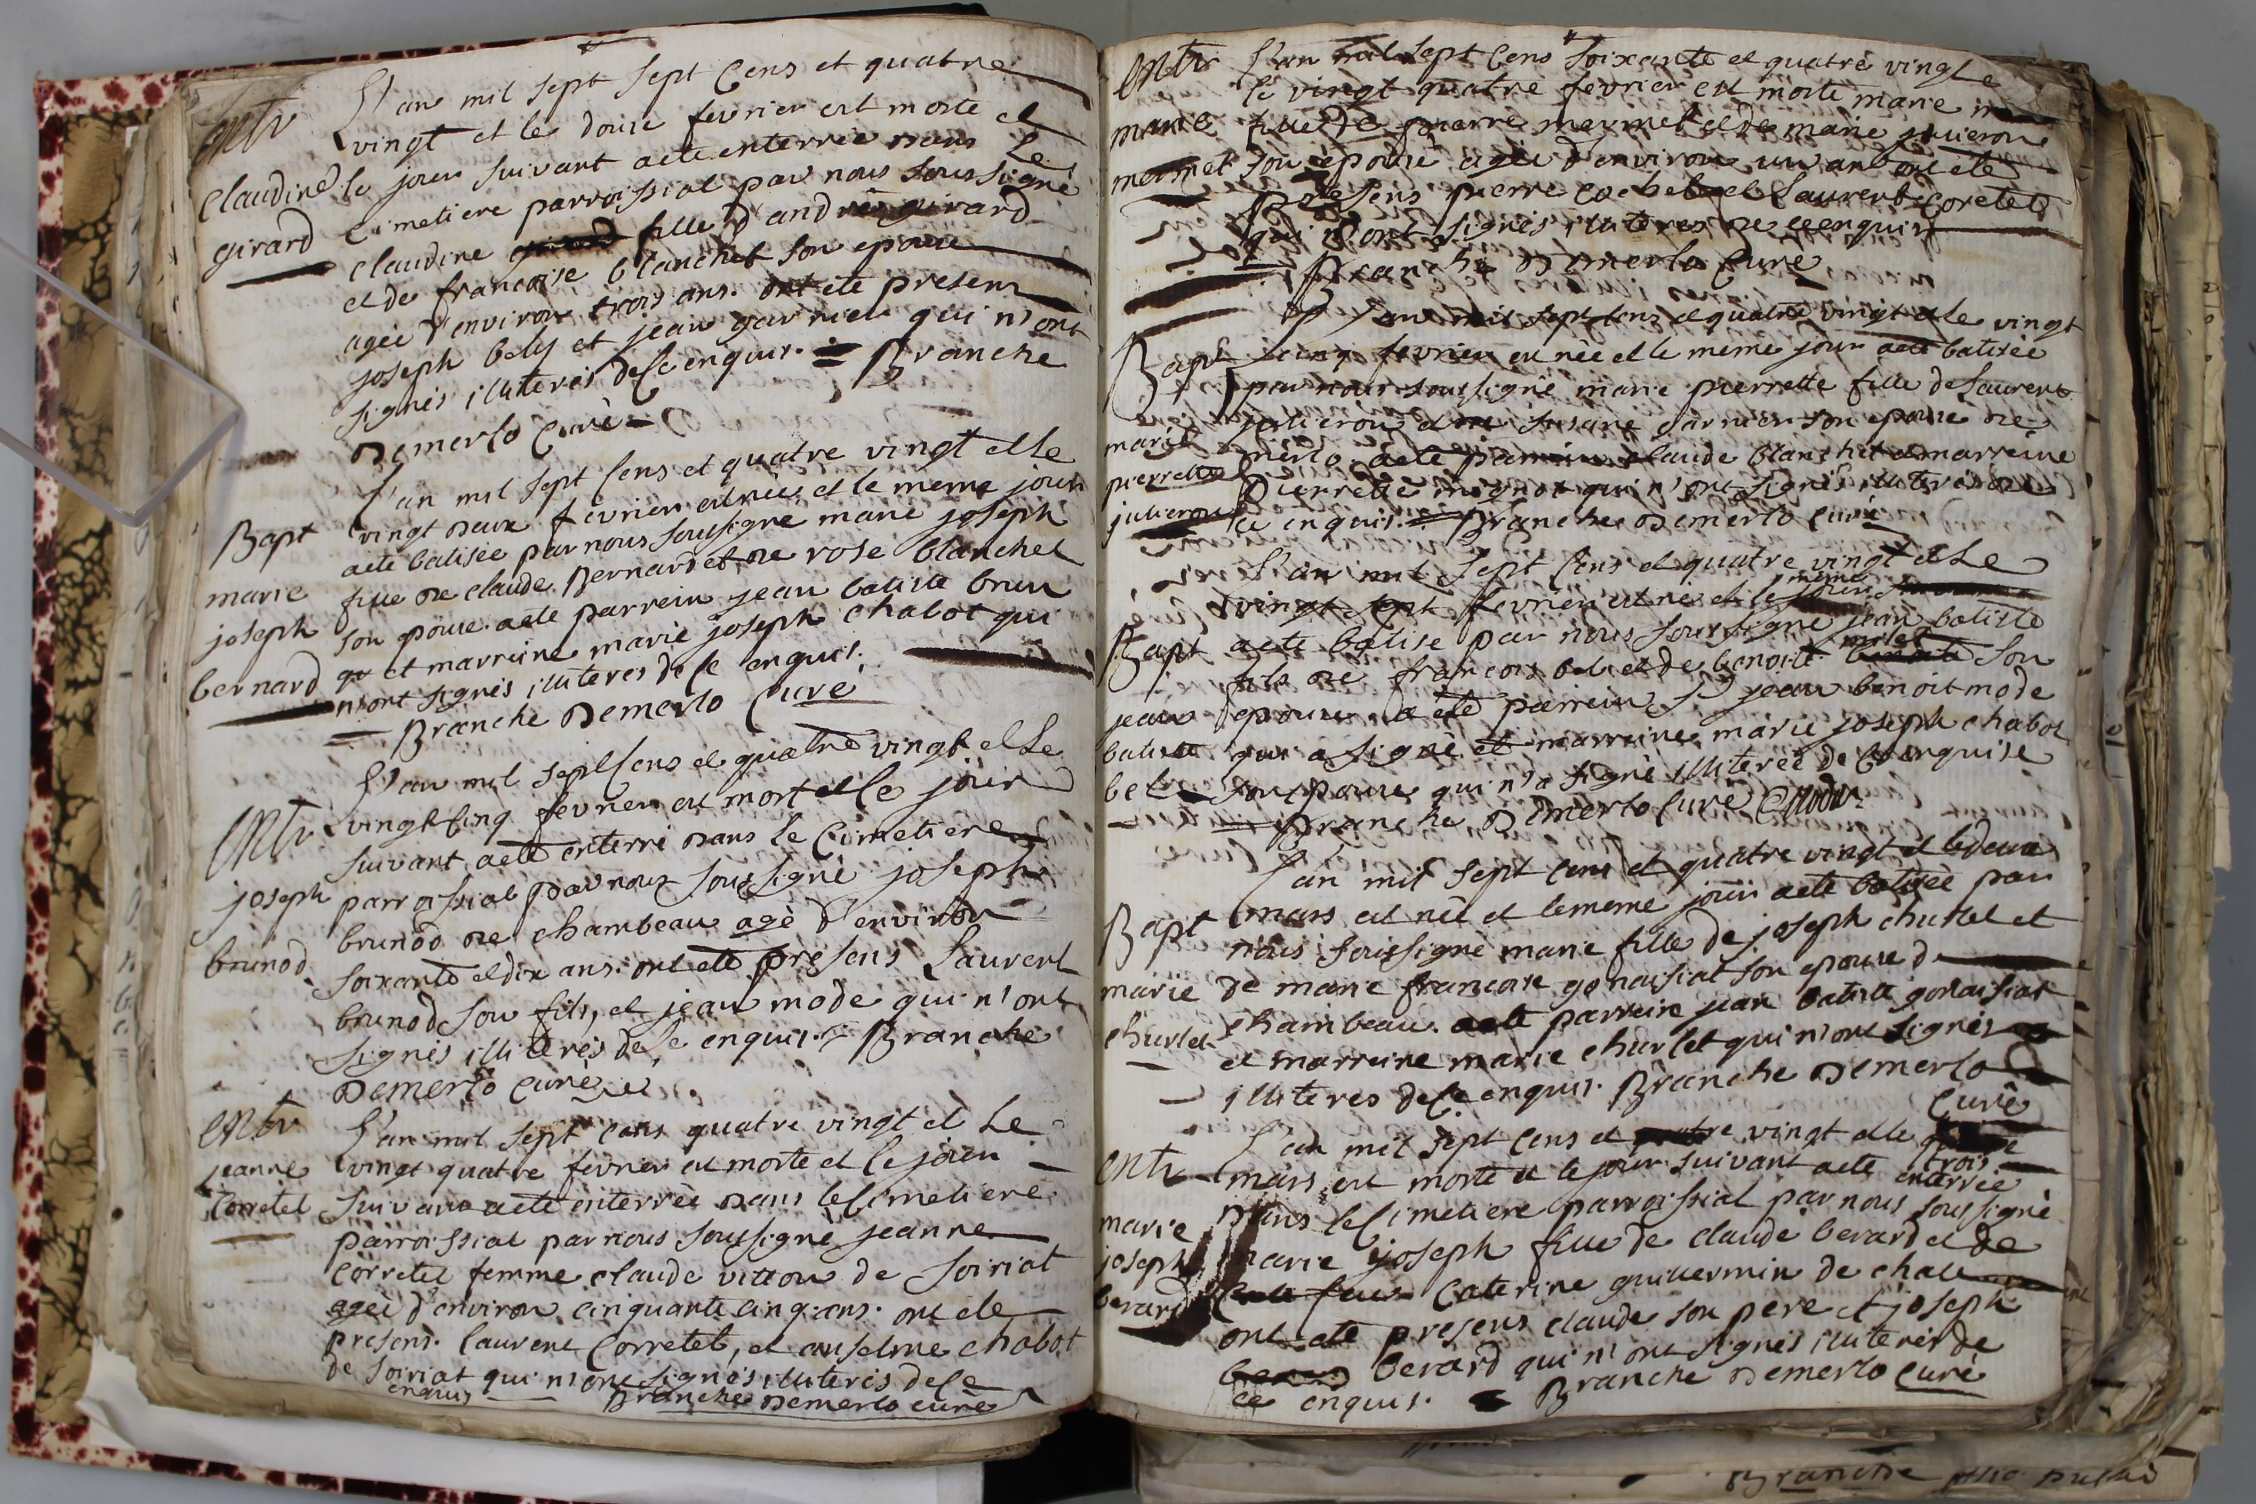 entr
claudine
girard
L'an mil sept sept cens et quatre
vingt et le douse fevrier est morte et
le jour suivant a ete enterree dans le
cimetiere parroissial par nous soussigné
claudine girard fille d'andré girard
et de francoise blanchet son epouse
ageè d'environ trois ans. ont ete presens
joseph bely et jean garnier qui n'ont
signés illiterés de ce enquis. = Branche
Demerlo curè
Bapt
marie
joseph
bernard
L'an mil sept cens et quatre vingt et le
vingt deux fevrier est née et le meme jour
a ete batisée par nous soussigné marie joseph
fille de claude Bernard et de rose blanchet
son epouse. a ete parrein jean batiste brun
qu et marreine marie joseph chabot qui
n'ont signés illiteres de ce enquis.
= Branche Demerlo Curé
entr
joseph
brunod
L'an mil sept cens et quatre vingt et le
vingt cinq fevrier est mort et le jour
suivant a ete enterré dans le cimetiere
parroissial par nous soussigné joseph
brunod de chambeau agè d'environ
soixante et dix ans. ont ete presens Laurent
brunod son fils, et jean mode qui n'ont
signés illiterés de ce enquis. Branche
Demerlo curè
entr
jeanne
Corretel
L'an mil sept cens quatre vingt et le
vingt quatre fevrier est morte et le jour
suivant a ete enterreè dans le cimetiere
parroissial par nous soussigné jeanne
corretel femme claude vitton de soiriat
ageè d'environ cinquante cinq ans. ont ete
presens. laurent Corretel, et anselme chabot
de soiriat qui n'ont signés illiterés de ce
enquis Branche Demerlo curè
entr
marie
mermet
L'an mil sept cens soixante et quatre vingt e
le vingt quatre fevrier est morte marie
fille de pierre mermet et de marie julieron
son epouse ageè d'environ un an ont ete
presens pierre cochet et Laurent Coretel
qui n'ont signés illiteres de ce enquis
Branche Demerlo Curé
Bapt
marie
pierrette
julieron
L'an mil sept cens et quatre vingt et le vingt
cinq fevrier est née et le meme jour a ete batisée
par nous soussigné marie pierrette fille de Laurent
julieron et susane garnier son epouse de
merlo. a ete parrein claude blanchet et marreine
Pierrette mignot qui n'ont signés illiterés de
ce enquis. = Branche Demerlo Curé
Bapt
jean
batiste
bel
L'an mil sept cens et quatre vingt et le
vingt sept fevrier est ne et le meme jour
a ete batise par nous soussigné jean batiste
fils de francois bel et de benoite son
epouse. a ete parrein Sr jean benoit mode
qui a signé et marreine marie joseph chabot
son epouse qui n'a signé illiterée de ce enquise
= Branche Demerlo Curé Mode
Bapt
marie
churlet
L'an mil sept cens et quatre vingt et le deux
mars est née et le meme jour a ete batisée par
nous soussigné marie fille de joseph churlet et
de marie francoise gonaisiat son epouse d
chambeau. a ete parrein jean batiste gonaisiat
et marreine marie churlet qui n'ont signés
illiteres de ce enquis. Branche Demerlo
Curé
entr
marie
joseph
berard
L'an mil sept cens et quatre vingt et le
trois
mars est morte et le jour suivant a ete enterrée
dans le cimetiere parroissial par nous soussigné
marie joseph fille de claude berard et de
Caterine guillermin de chale
ont ete presens claude son pere et joseph
berard qui n'ont signés illiterés de
ce enquis. Branche Demerlo Curè
Branche